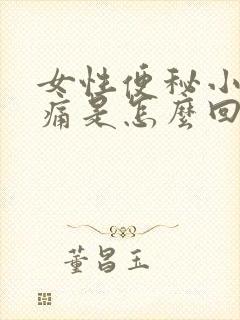 女性便秘小
痛是怎麼回
董昌玉